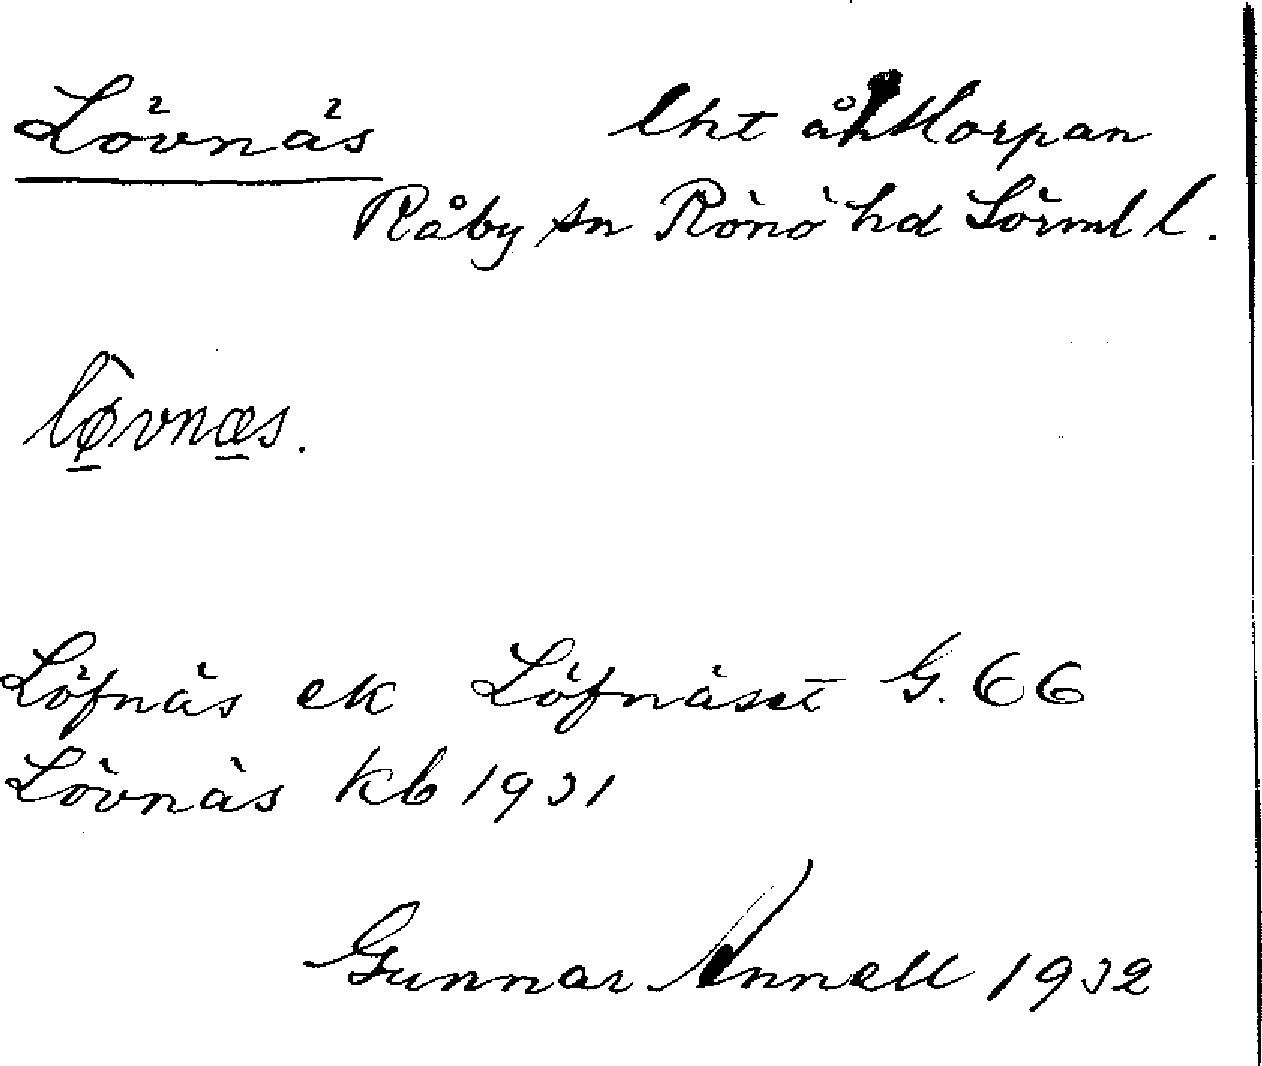 Lövnäs lht åh Horpan
Råby sn Rönö hd Sörml l.
lø̱vnæ̱s.
Löfnäs ek Löfnäset G. 66
Lövnäs kb 1931
Gunnar Annell 1932